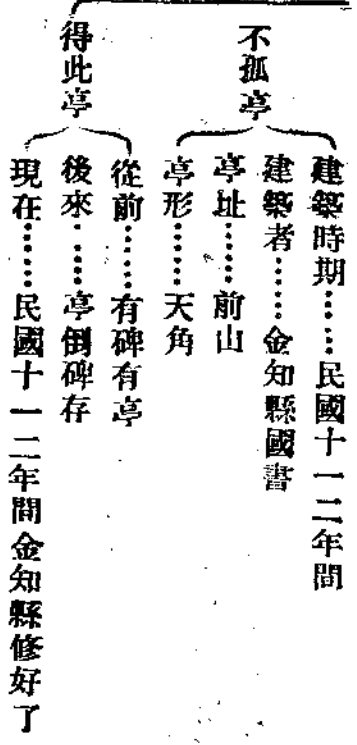 不孤亭
建築時期……民國十一二年間
建築者……金知縣國書
亭址……前山
亭形……天角
得此亭
從前……有碑有亭
後來……亭倒碑存
現在……民國十一二年間金知縣修好了